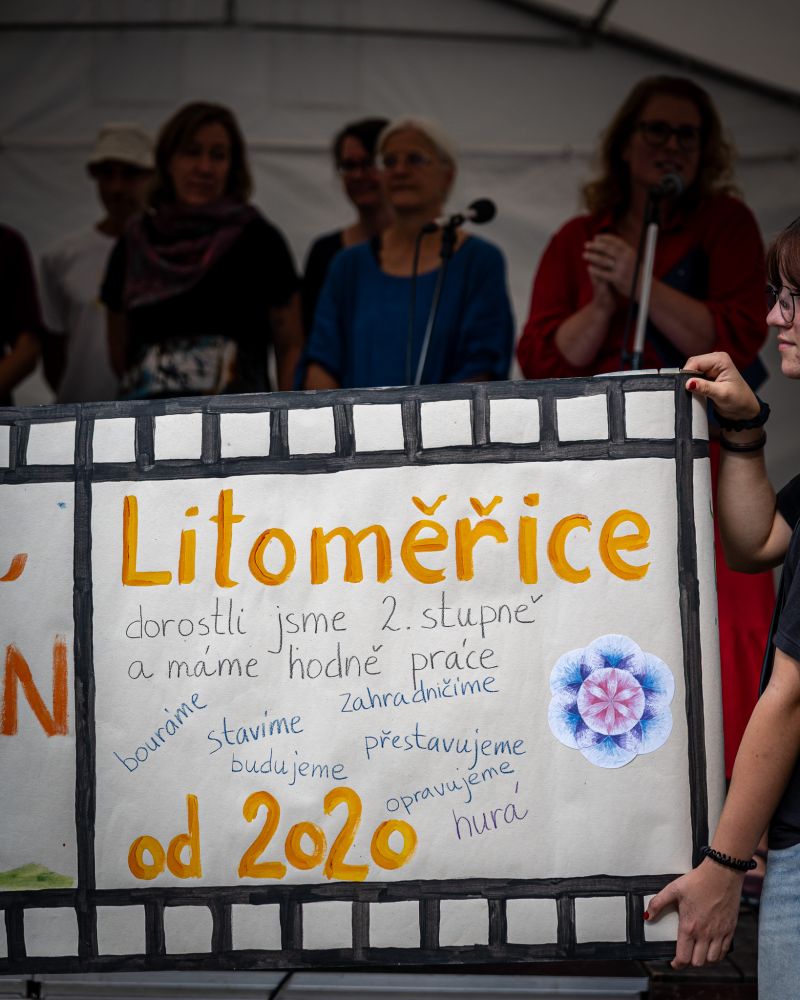 N
Litoměřice
dorostli jsme 2. stupně
a máme hodně práce
zahradničíme
bouráme
stavíme
přestavujeme
budujeme
opravujeme
od 2020
hurá